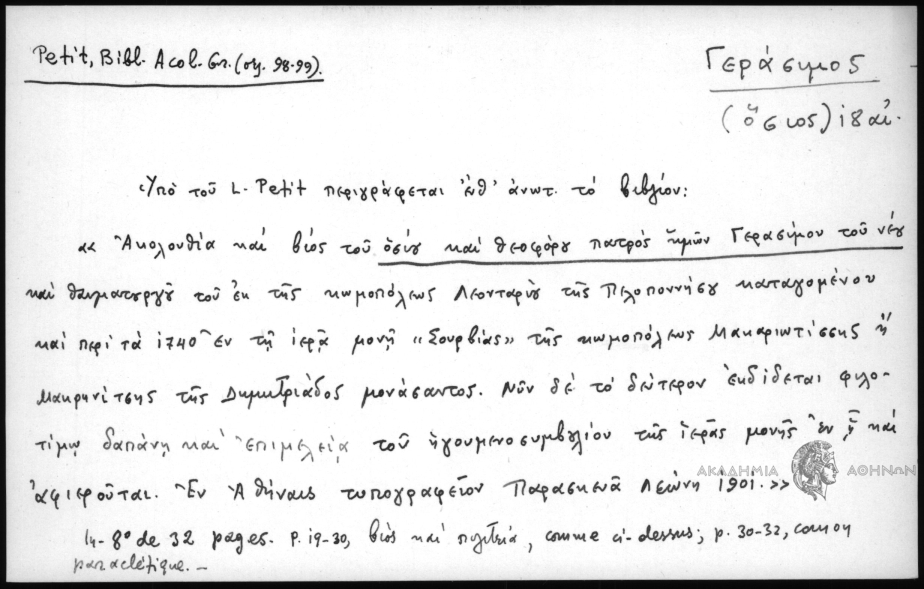 Petit, Bibl. Acol. Gr. (σχ. 98-99).
Γεράσιμος
(ὅσιος) 18 αἰ.
Ὑπὸ τοῦ L. Petit περιγράφεται ἐνθ' ἀνωτ. τὸ βιβλίον:
«Ἀκολουθία καὶ βίος τοῦ ὁσίου καὶ θεοφόρου πατρὸς ἡμῶν Γερασίμου τοῦ νέου
καὶ θαυματουργοῦ τοῦ ἐκ τῆς κωμοπόλεως Λεονταρίου τῆς Πελοποννήσου καταγομένου
καὶ περὶ τὰ 1740 ἐν τῇ ἱερᾷ μονῇ «Σουρβίας» τῆς κωμοπόλεως Μακαριωτίσσης ἢ
Μακρηνίτσης τῆς Δημητριάδος μονάσαντος. Νῦν δὲ τὸ δεύτερον ἐκδίδεται φιλο-
τίμῳ δαπάνῃ καὶ ἐπιμελείᾳ τοῦ ἡγουμενοσυμβουλίου τῆς ἱερᾶς μονῆς ἐν ᾗ καὶ
ἀφιεροῦται. Ἐν Ἀθήναις τυπογραφεῖον Παρασκευᾶ Λεώνη 1901.»
ΑΚΑΔΗΜΙΑ ΑΘΗΝΩΝ
In-8° de 32 pages. P. 19-30, βίος καὶ πολιτεία, comme ci-dessus; p. 30-32, canon
paraclétique. –